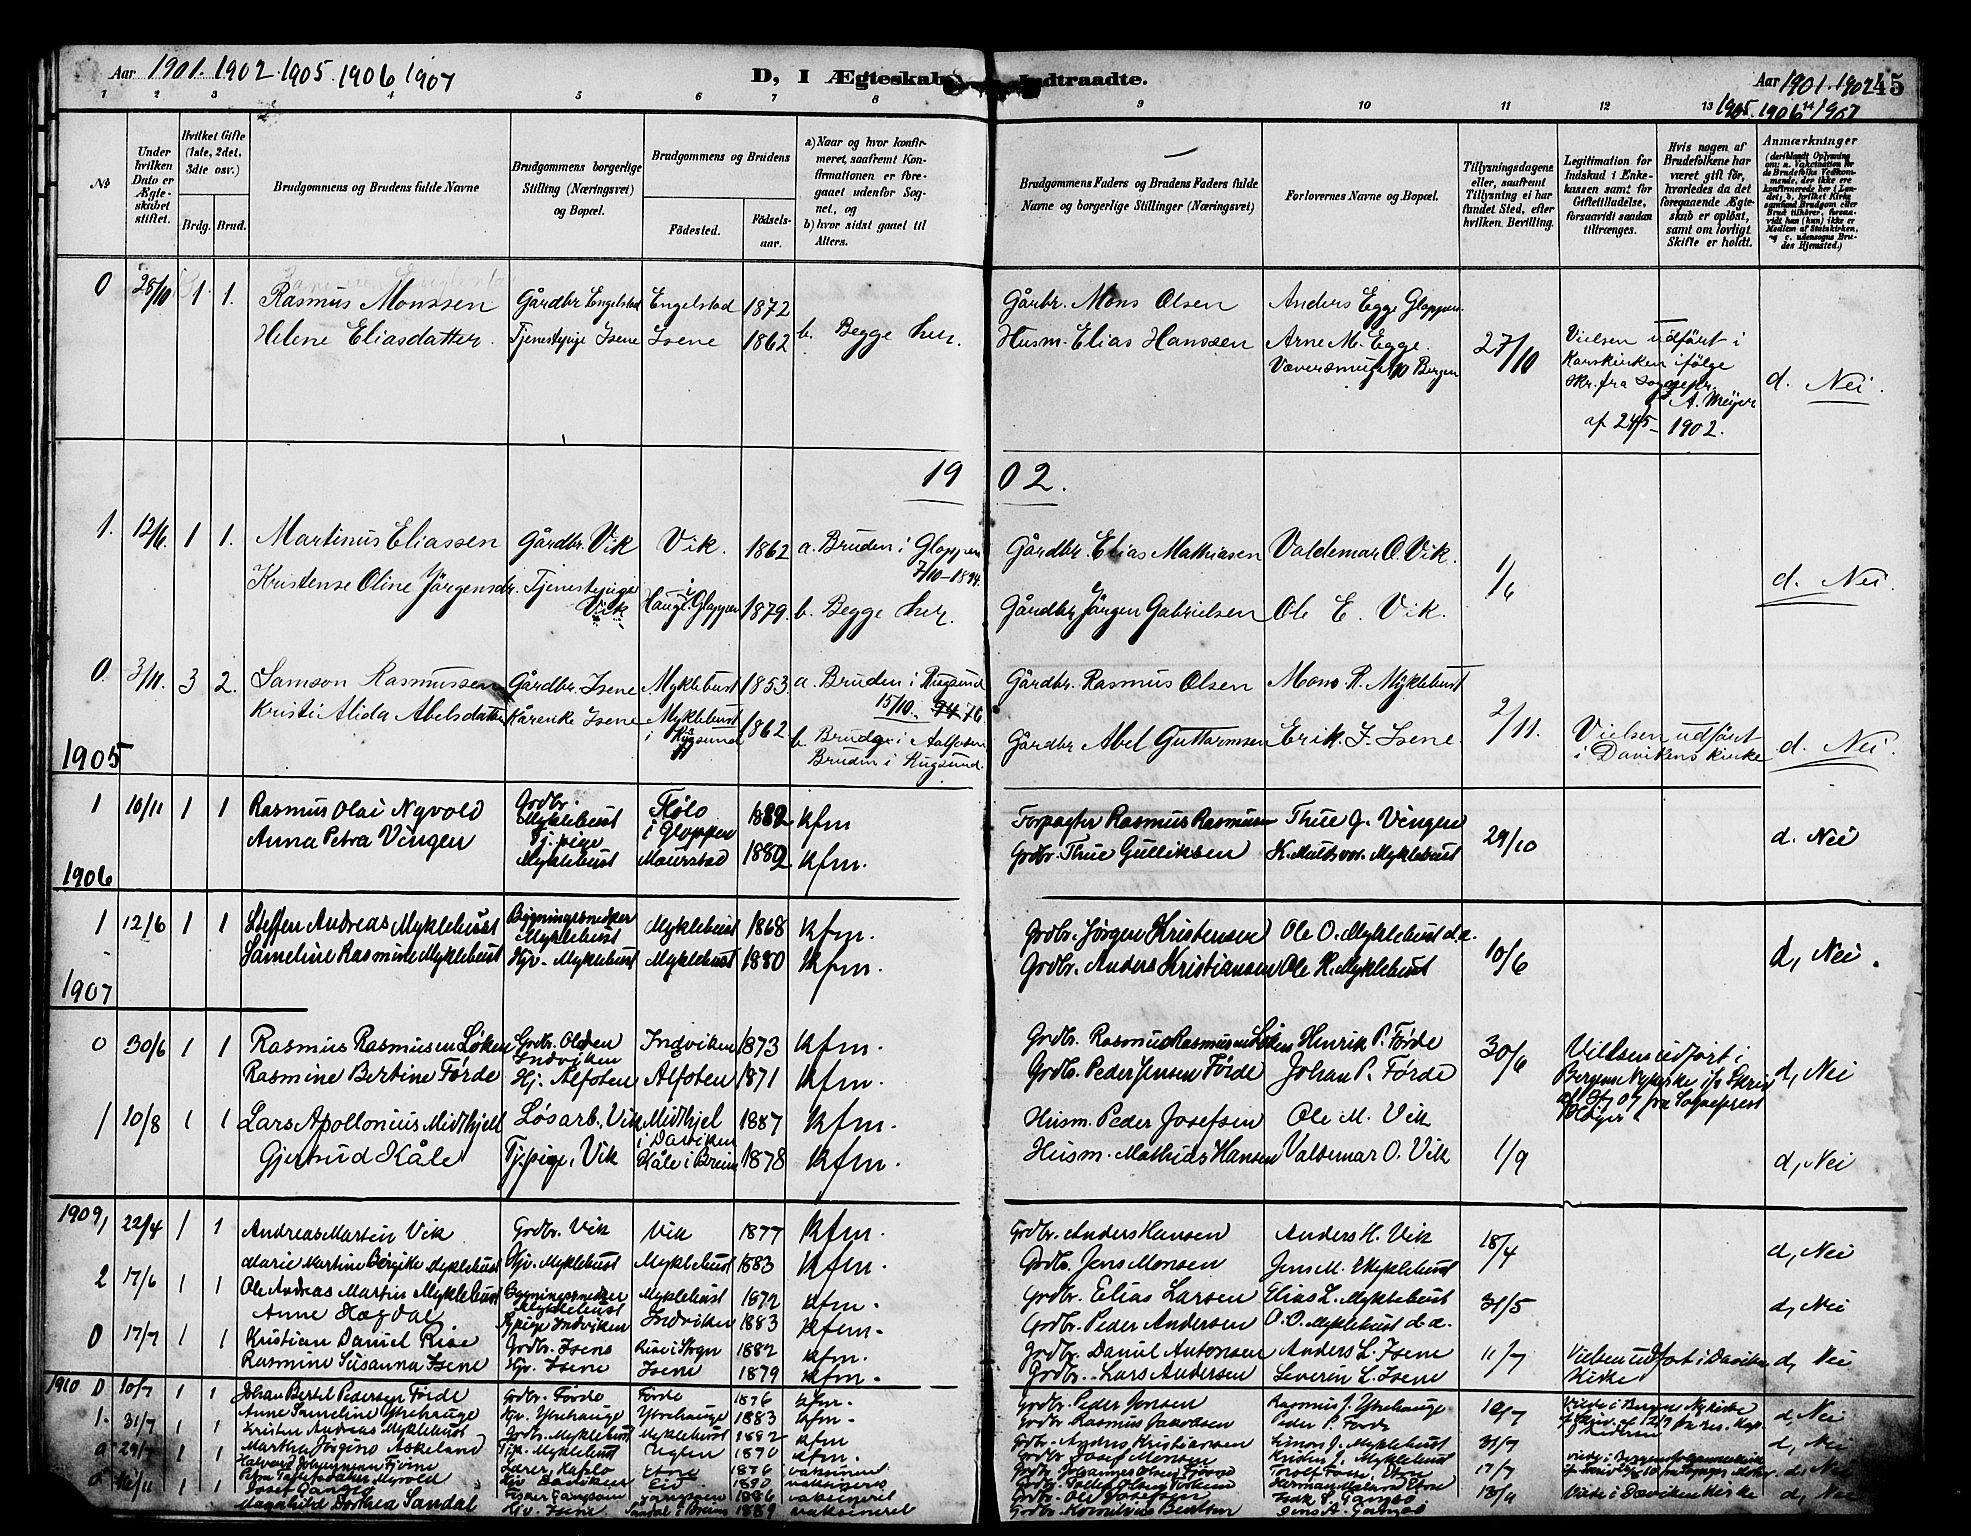 Aar 1901. 1902. 1905. 1906 1907
D, I Ægteskab Indtraadte.
Aar 1901. 1902 45
1905. 1906 1907
1 2 3 4 5 6 7 8 9 10 11 12 13 14
No
Under hvilken Dato er Ægteskabet stiftet.
Hvilket Gifte (1ste, 2det, 3die osv.)
Brdg. Brud.
Brudgommens og Brudens fulde Navne
Brudgommens borgerlige Stilling (Næringsvei) og Bopæl.
Brudgommens og Brudens
Födested.
Födselsaar.
a) Naar og hvor konfirmeret, saafremt Konfirmationen er foregaaet udenfor Sognet, og
b) hvor sidst gaaet til Alters.
Brudgommens Faders og Brudens Faders fulde Navne og borgerlige Stillinger (Næringsvei)
Forlovernes Navne og Bopæl.
Tillysningsdagene eller, saafremt Tillysning ei har fundet Sted, efter hvilken Bevilling.
Legitimation for Indskud i Enkekassen samt for Giftetilladelse, forsaavidt saadan tiltrænges.
Hvis nogen af Brudefolkene har været gift för, hvorledes da det foregaaende Ægteskab er oplöst, samt om lovligt Skifte er holdt.
Anmærkninger
0 28/10 1 1. Rasmus Monssen Gårdbr Engelstad Engelstad 1872 Gårbr. Mons Olsen Anders Egge Gloppen
Helene Eliasdatter. Tjenestepige Isene Isene 1862 b. Begge her. Husm. Elias Hanssen Arne M. Egge. 27/10
Væversmuget 10 Bergen
Vielsen udført i
Korskirken ifölge
skr. fra sognepr.
A. Meyer
af 24/5 – 1902.
d. Nei.
19 02.
1. 12/6. 1 1. Martinus Eliassen Gårdbr. Vik Vik. 1862 a. Bruden i Gloppen Gårdbr. Elias Mathiasen Valdemar O. Vik. 1/6 d. Nei.
7/10 – 1894.
Kristense Oline Jörgensdr. Tjenestepige Vik Hauge i Gloppen 1879. b. Begge her. Gårdbr Jörgen Gabrielsen Ole E. Vik.
0. 3/11. 3 2. Samson Rasmussen Gårdbr. Isene Myklebust 1853. a. Bruden i Rugsund Gårdbr. Rasmus Olsen Mons R. Myklebust 2/11.
15/10. 76.
Kristi Alida Abelsdatter Kårenke Isene Myklebust i Rugsund 1862 b. Brudg. i Aalfoten Gårdbr Abel Guttormsen Erik J. Isene.
Bruden i Rugsund.
Vielsen udført
i Davikens kirke
d. Nei.
1905
1 10/11 1 1 Rasmus Olai Nqvold Grdbr. Myklebust Flølo i Gloppen 1882 kfm Forpagter Rasmus Rasmusen Thue J. Vingen 29/10 d. Nei
Anna Petra Vingen Tj. pige Myklebust Maurstad 1882 kfm. Grdbr. Thue Gulliksen K. Multsvor. Myklebust
1906
1 12/6 1 1 Steffen Andreas Myklebust Bygningssnedker Myklebust Myklebust 1868 kfm. Grdbr. Jørgen Kristensen Ole O. Myklebust d.a. 10/6 d, Nei.
Sameline Rasmine Myklebust Hjv. Myklebust Myklebust 1880 kfm. Grdbr. Anders Kristiansen Ole K. Myklebust
1907
0 30/6 1 1 Rasmus Rasmusen Løken Grdbr. Olden Indviken Indviken 1873 kfm. Grdbr. Rasmus Rasmusen Løken Henrik P. Førde 30/6
Rasmine Bertine Førde Hj. Alfoten Alfoten 1871 kfm. Grdbr. Peder Jensen Førde Johan P. Førde
Vielsen udført i
Bergens Nykirke
07 fra Sogneprest
d, Nei
1 10/8 1 1 Lars Apollonius Midthjell Løsarb. Vik Midthjel i Daviken 1887 kfm. Husm. Peder Josefsen Ole M. Vik
Gjertrud Kåle Tj. pige, Vik Kåle i Breim 1878 kfm. Husm. Mathias Hansen Valdemar O. Vik 1/9 d, Nei
1909, 22/4 1 1 Andreas Martin Vik Grdbr. Vik Vik 1877 kfm. Grdbr. Anders Hansen Anders K. Vik 18/4 d, Nei
Marie Martine Bergike Myklebust Hjv. Myklebust Myklebust 1883 kfm. Grdbr. Jens Monsen Jens M. Myklebust
2 17/6 1 1 Ole Andreas Martius Myklebust Bygningssnedker Myklebust Myklebust 1872 kfm. Grdbr. Elias Larsen Elias L. Myklebust 31/5 d, Nei
Anne Hagdal Tj. pige Indviken Indviken 1883 kfm. Grdbr. Peder Andersen O. O. Myklebust d.a.
0 17/7 1 1 Kristian Daniel Rise Grdbr. Isene Rise i Sogn 1882 kfm. Grdbr. Daniel Antonsen Anders L. Isene 11/7 Vielsen udført i Daviken Kirke d, Nei
Rasmine Susanna Isene Hjv. Isene Isene 1879 kfm. Grdbr. Lars Andersen Severin L. Isene
1910 0 10/7 1 1 Johan Bertel Pedersen Førde Grdbr. Førde Førde 1876 kfm. Grdbr. Peder Jensen Rasmus J. Ytrehauge 10/7 d, Nei
Anne Sameline Ytrehauge Hjv. Ytrehauge Ytrehauge 1883 kfm. Grdbr Rasmus Jakobsen Peder P. Førde
1. 31/7 1 1 Kristen Andreas Myklebust Grdbr. Myklebust Myklebust 1882 kfm Grdbr. Anders Kristiansen Simon J. Myklebust 31/7 d, Nei
Martha Jørgine Askeland Tj. p. Myklebust 1870 kfm. Grdbr. Josef Monsen Kristen J. Myklebust
29/7 1 1 1876 vaksineret Grdbr. Johannes Olsen 17/7 d, Nei
vaksineret
12/11 1 1 Josef Gangsø Fisker Gangsøen Gangsøen 1886 vaksineret Grdbr. Ole 13/11 Viede i Daviken Kirke d, Nei
Magnhild Dorthea Sandal Hjv. Isene Sandal i Breim 1889 vaksineret Jens A. Gangsø